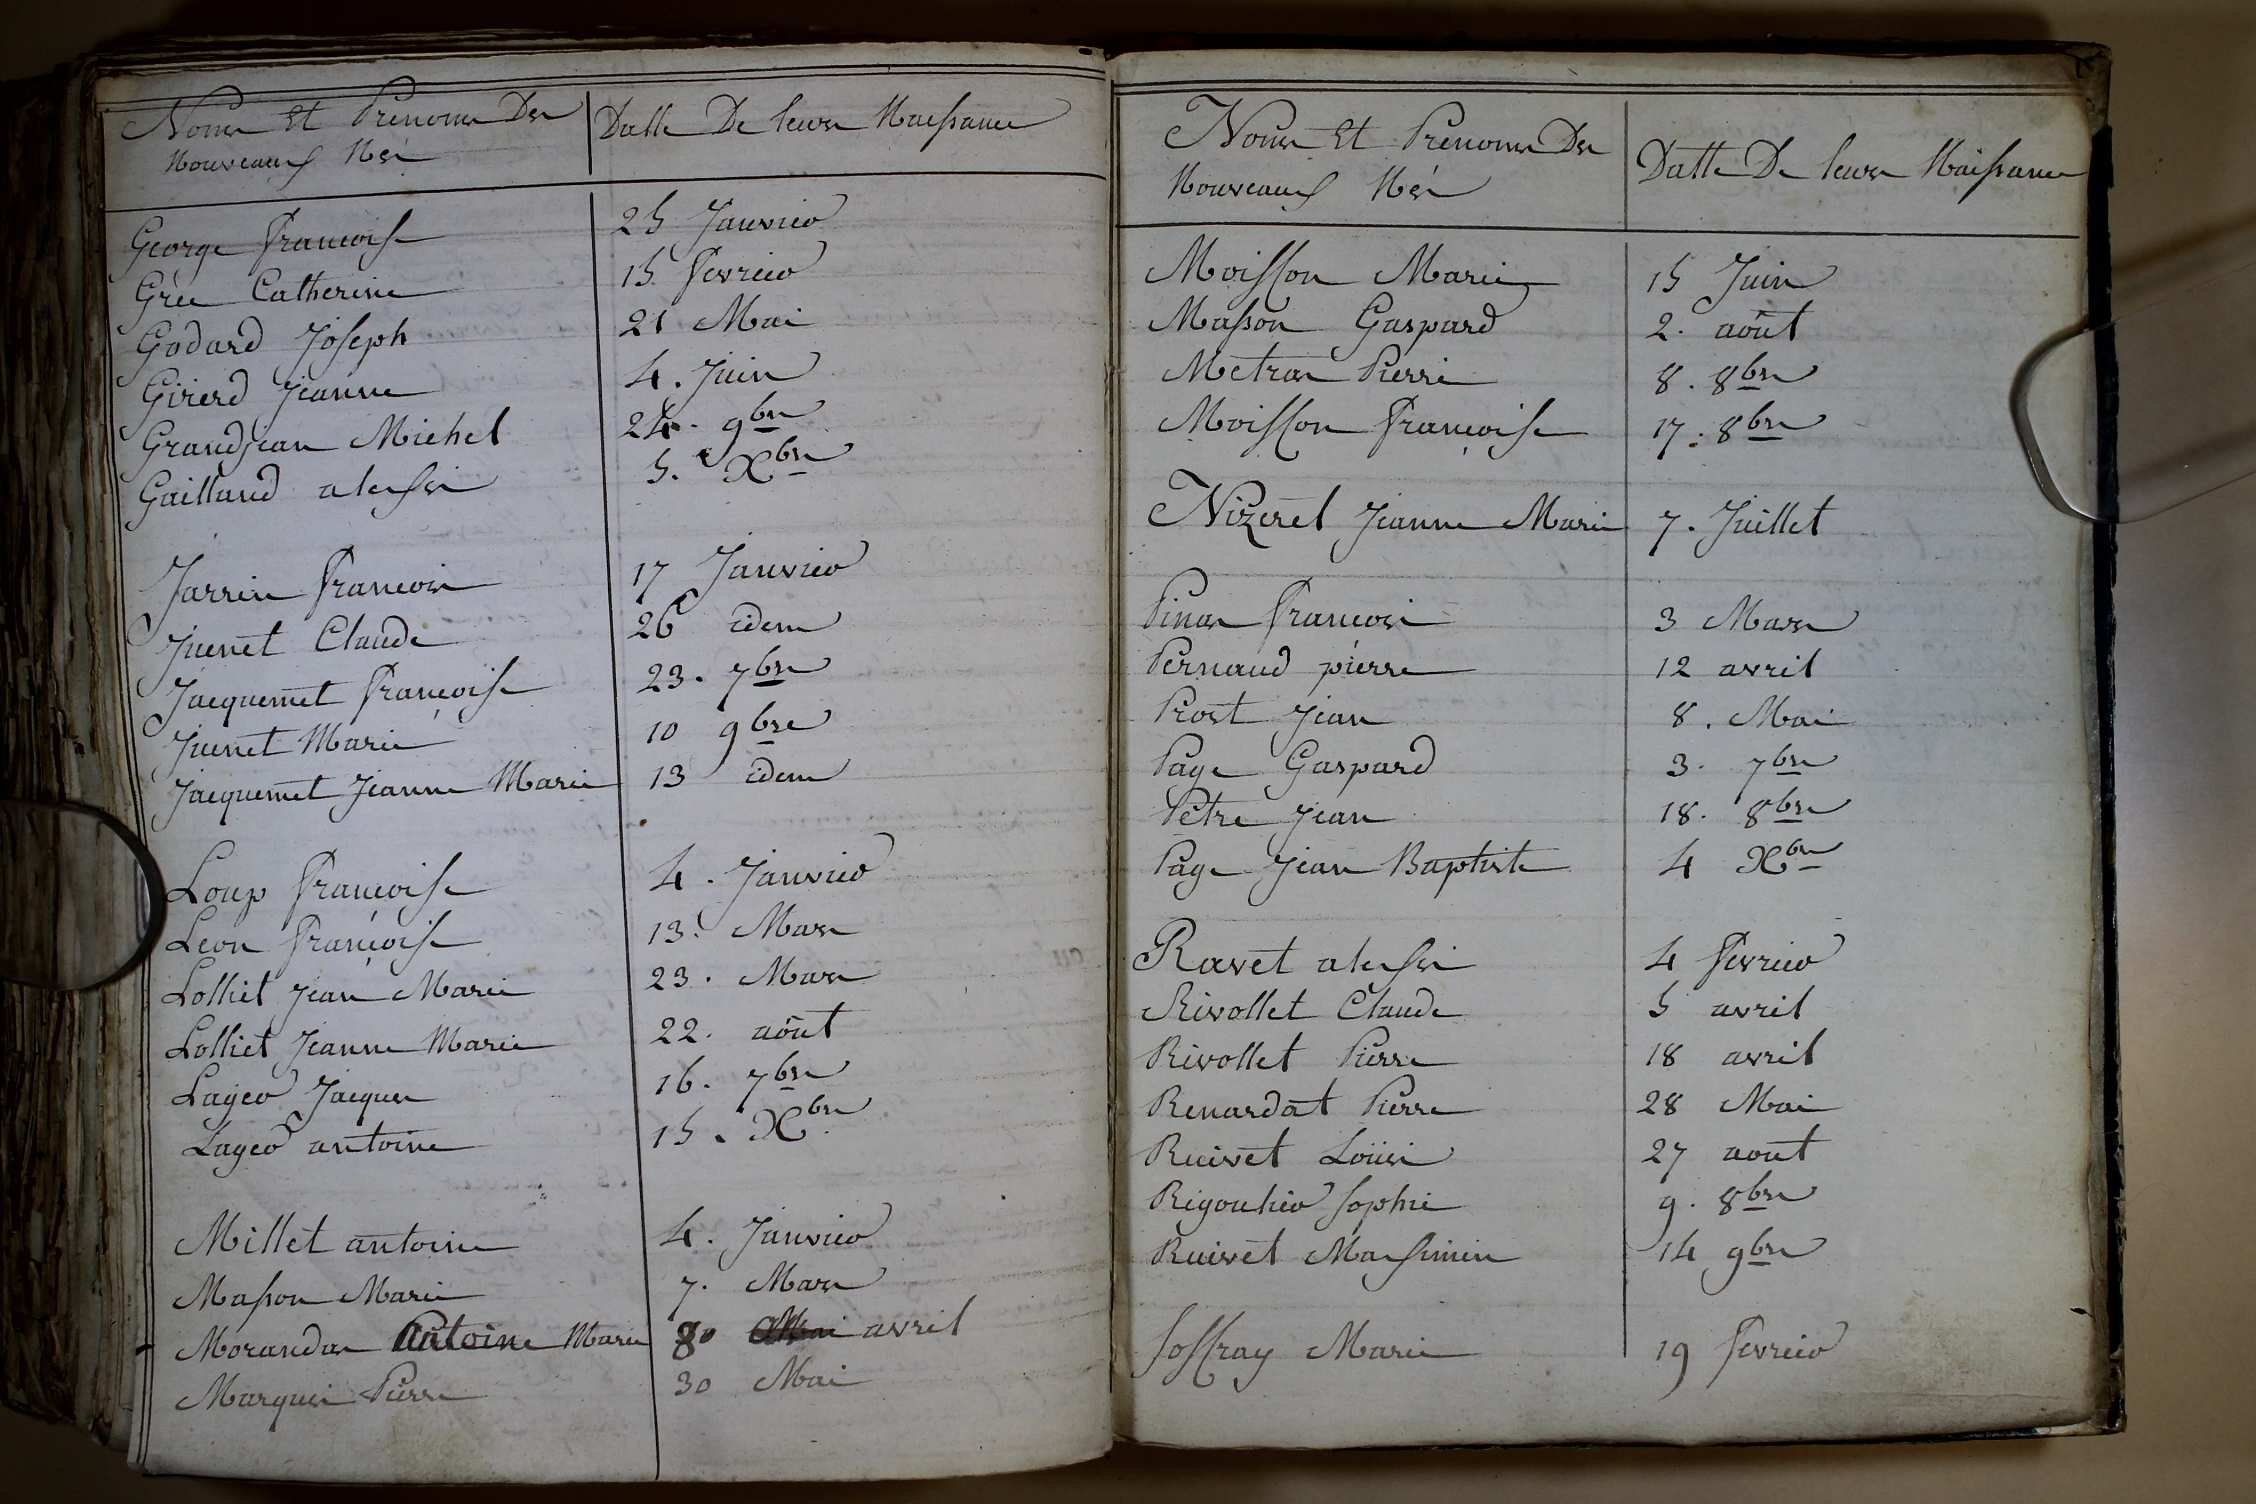 Noms Et Prénoms Des Nouveaux Nés
Datte De leurs Naissance
George françoise 25 Janvier
Grée Catherine 15 fevrier
Godard Joseph 21 Mai
Girerd Jeanne 4. Juin
Grandjean Michel 24. 9bre
Gaillaud alexis 5. Xbre
Jarrin françois 17 Janvier
Juenet Claude 26 idem
Jacquemet françoise 23. 7bre
Juenet Marie 10 9bre
Jacquemet Jeanne Marie 13 idem
Loup françoise 4. Janvier
Léon françoise 13. Mars
Lolliet Jean Marie 23. Mars
Lolliet Jeanne Marie 22. août
Lager Jacques 16. 7bre
Lager antoine 15. Xbre
Millet antoine 4. Janvier
Masson Marie 7. Mars
Morandas Antoine Marie avril
Marquis Pierre 30 Mai
Noms Et Prénoms Des Nouveaux Nés
Datte De leurs Naissance
Moisson Marie 15 Juin
Masson Gaspard 2. août
Metras Pierre 8. 8bre
Moisson françoise 17. 8bre
Nizeret Jeanne Marie 7. Juillet
Pinas françois 3 Mars
Pernaud pierre 12 avril
Prost Jean 8. Mai
Page Gaspard 3. 7bre
Pêtre Jean 18. 8bre
Page Jean Baptiste 4 Xbre
Ravet alexis 4 fevrier
Rivollet Claude 5 avril
Rivollet Pierre 18 avril
Renardat Pierre 28 Mai
Ruivet Loüis 27 aout
Sophie 9. 8bre
Ruivet Maximin 14 9bre
Marie 19 fevrier